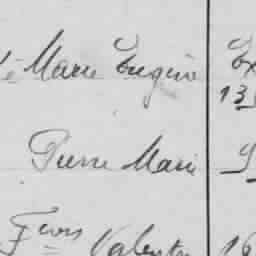 Marie Eugène Ex
13
Pierre Marie
Fçois Valentin 16